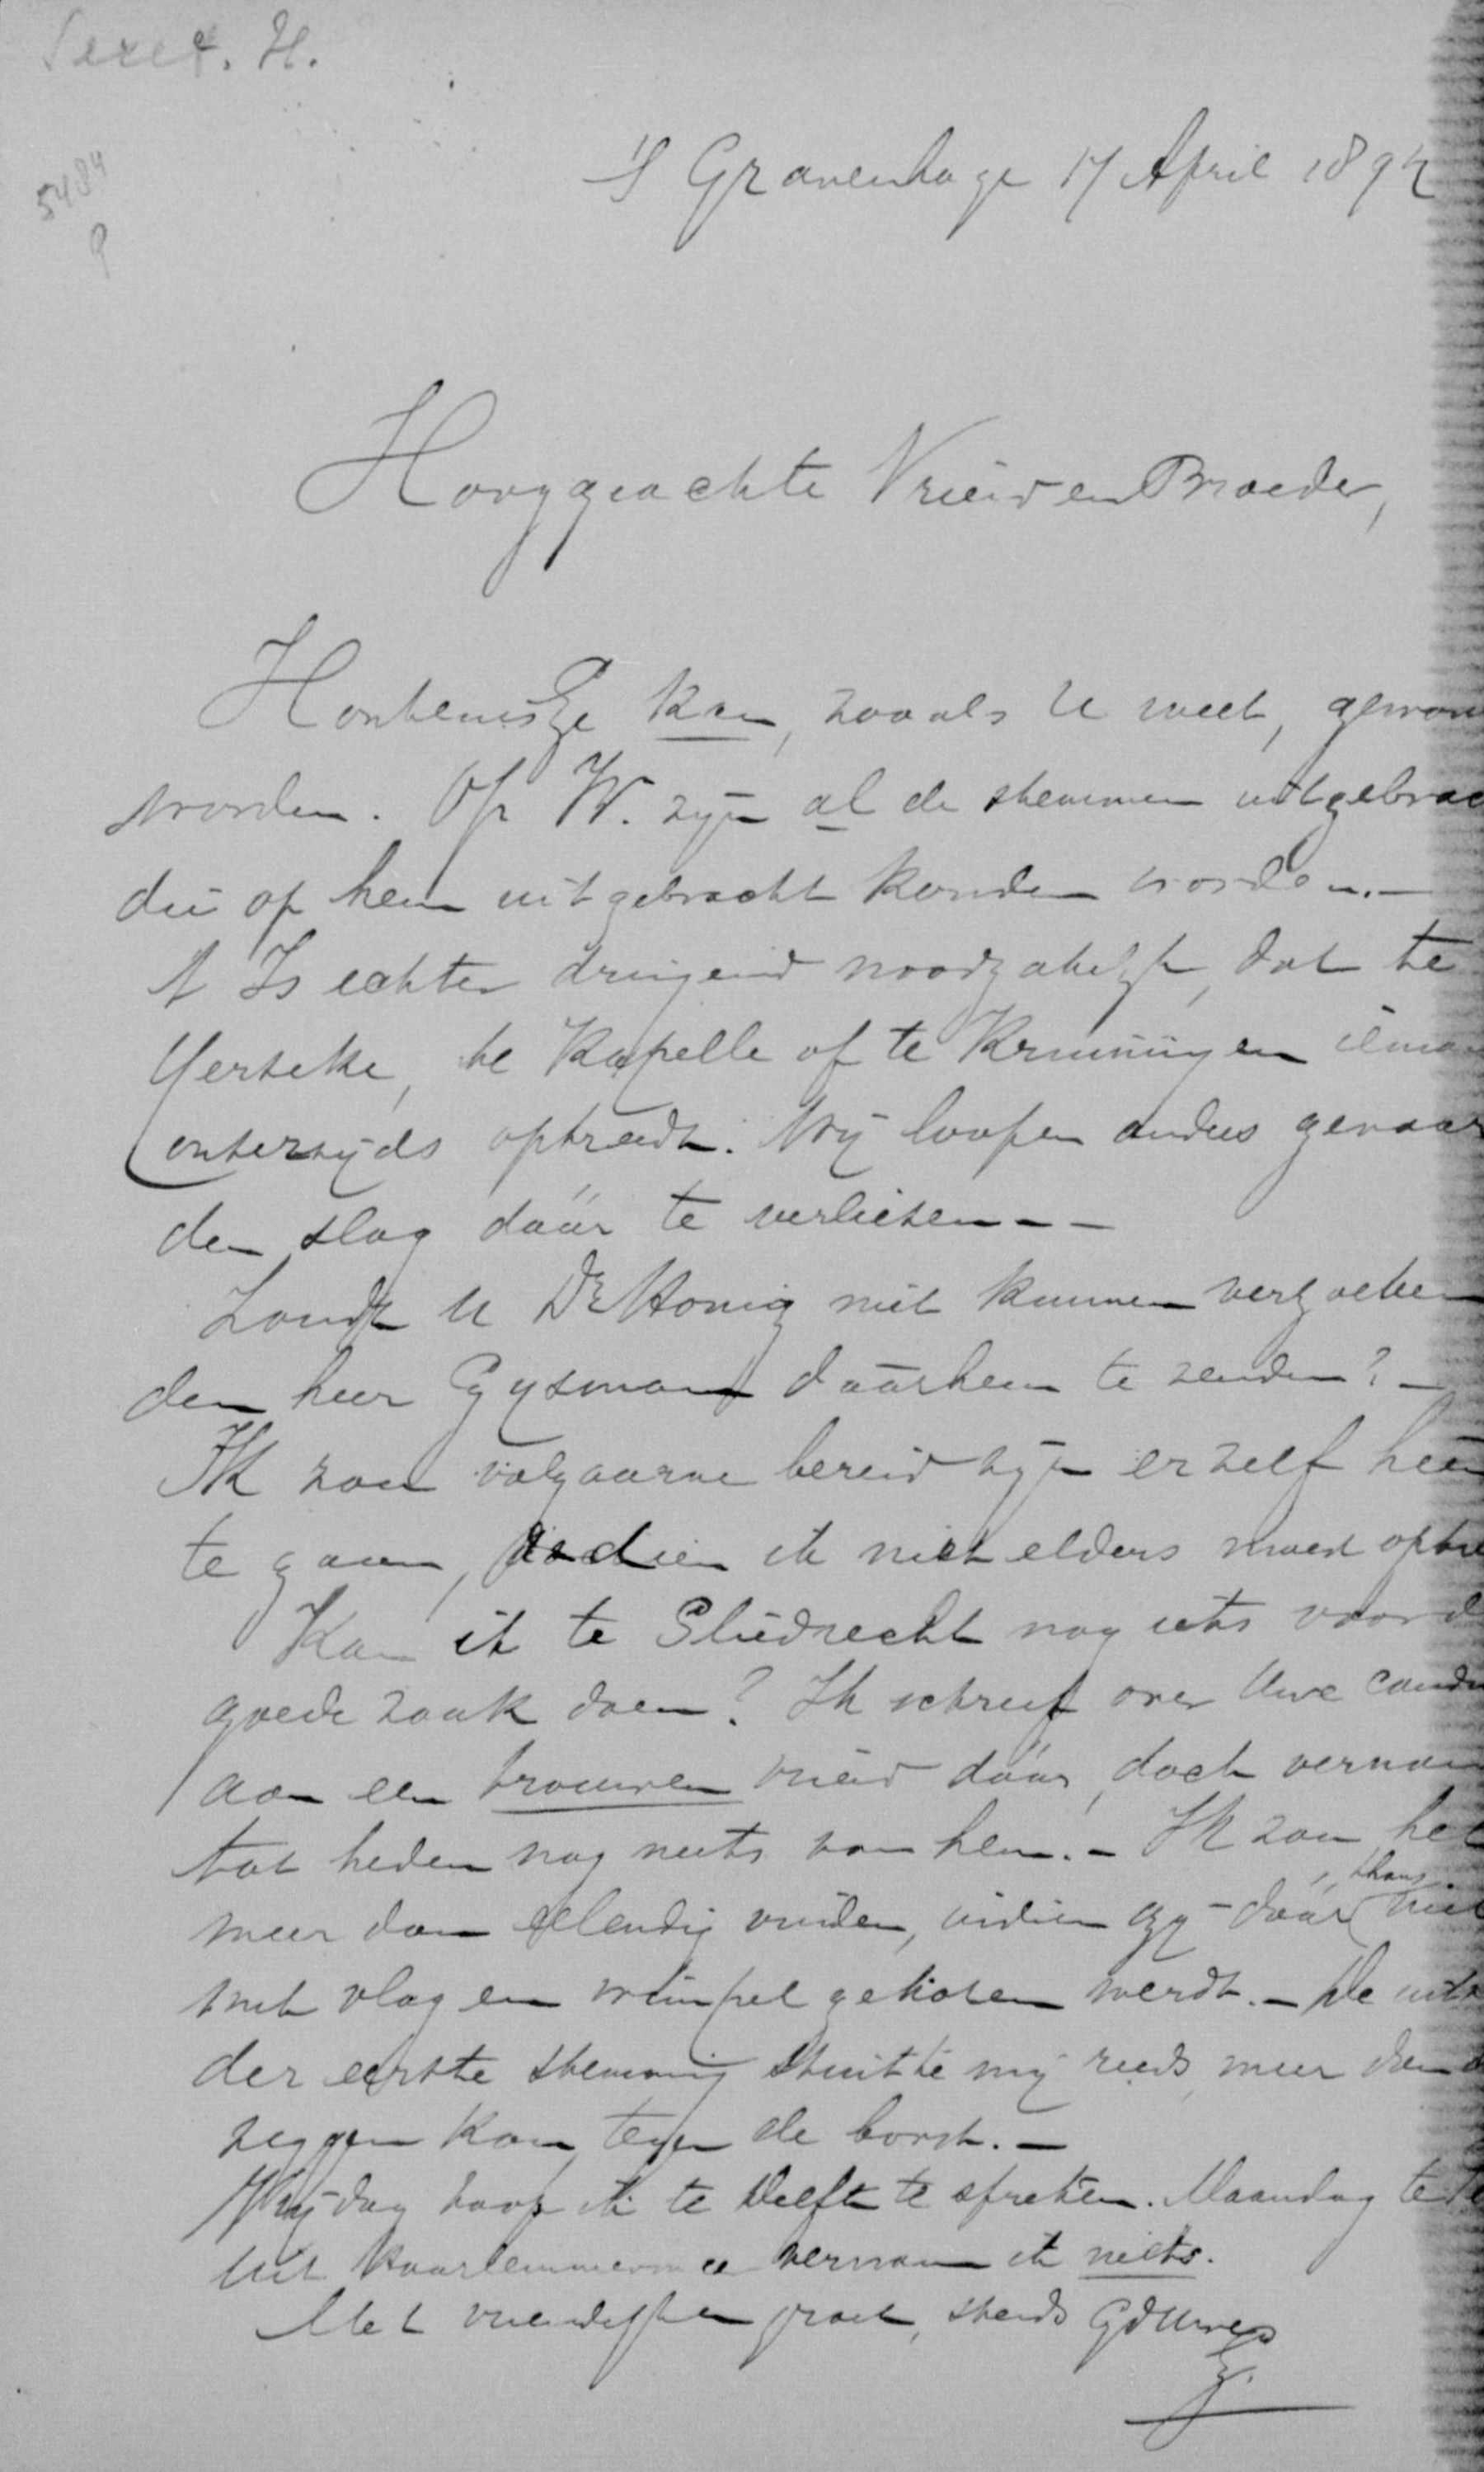 Secret. H.
5484
's Gravenhage 17 April 1894
Hooggeachte Vriend en Broeder,
Hontenisse kan, zooals U weet, gewon
worden. Op W. zijn al de stemmen uitgebrac
die op hem uitgebracht konden worden.—
't Is echter dringend noodzakelijk, dat te
Yerseke, te Kapelle of te Kruiningen iema
onzerzijds optreedt. Wij loopen anders gevaar
den slag dáár te verliezen.——
Zoudt U Dr Honig niet kunnen verzoeken
den heer Gysman daarheen te zenden?—
Ik zou volgaarne bereid zijn er zelf heen
te gaan, indien ik niet elders moest optre
Kan ik te Sliedrecht nog iets voor d
goede zaak doen? Ik schreef over Uwe candi
aan een trouwen vriend dáár, doch vernam
tot heden nog niets van hem.— Ik zou het
meer dan ellendig vinden, indien gij dáár thans niet
met vlag en wimpel gekozen werdt.— De uits
der eerste stemming stuitte mij reeds meer dan
zeggen kan, tegen de borst.—
Vrijdag hoop ik te Delft te spreken. Maandag te
Uit Haarlemmermeer vernam ik niets.
Met vriendelijken groet, steeds